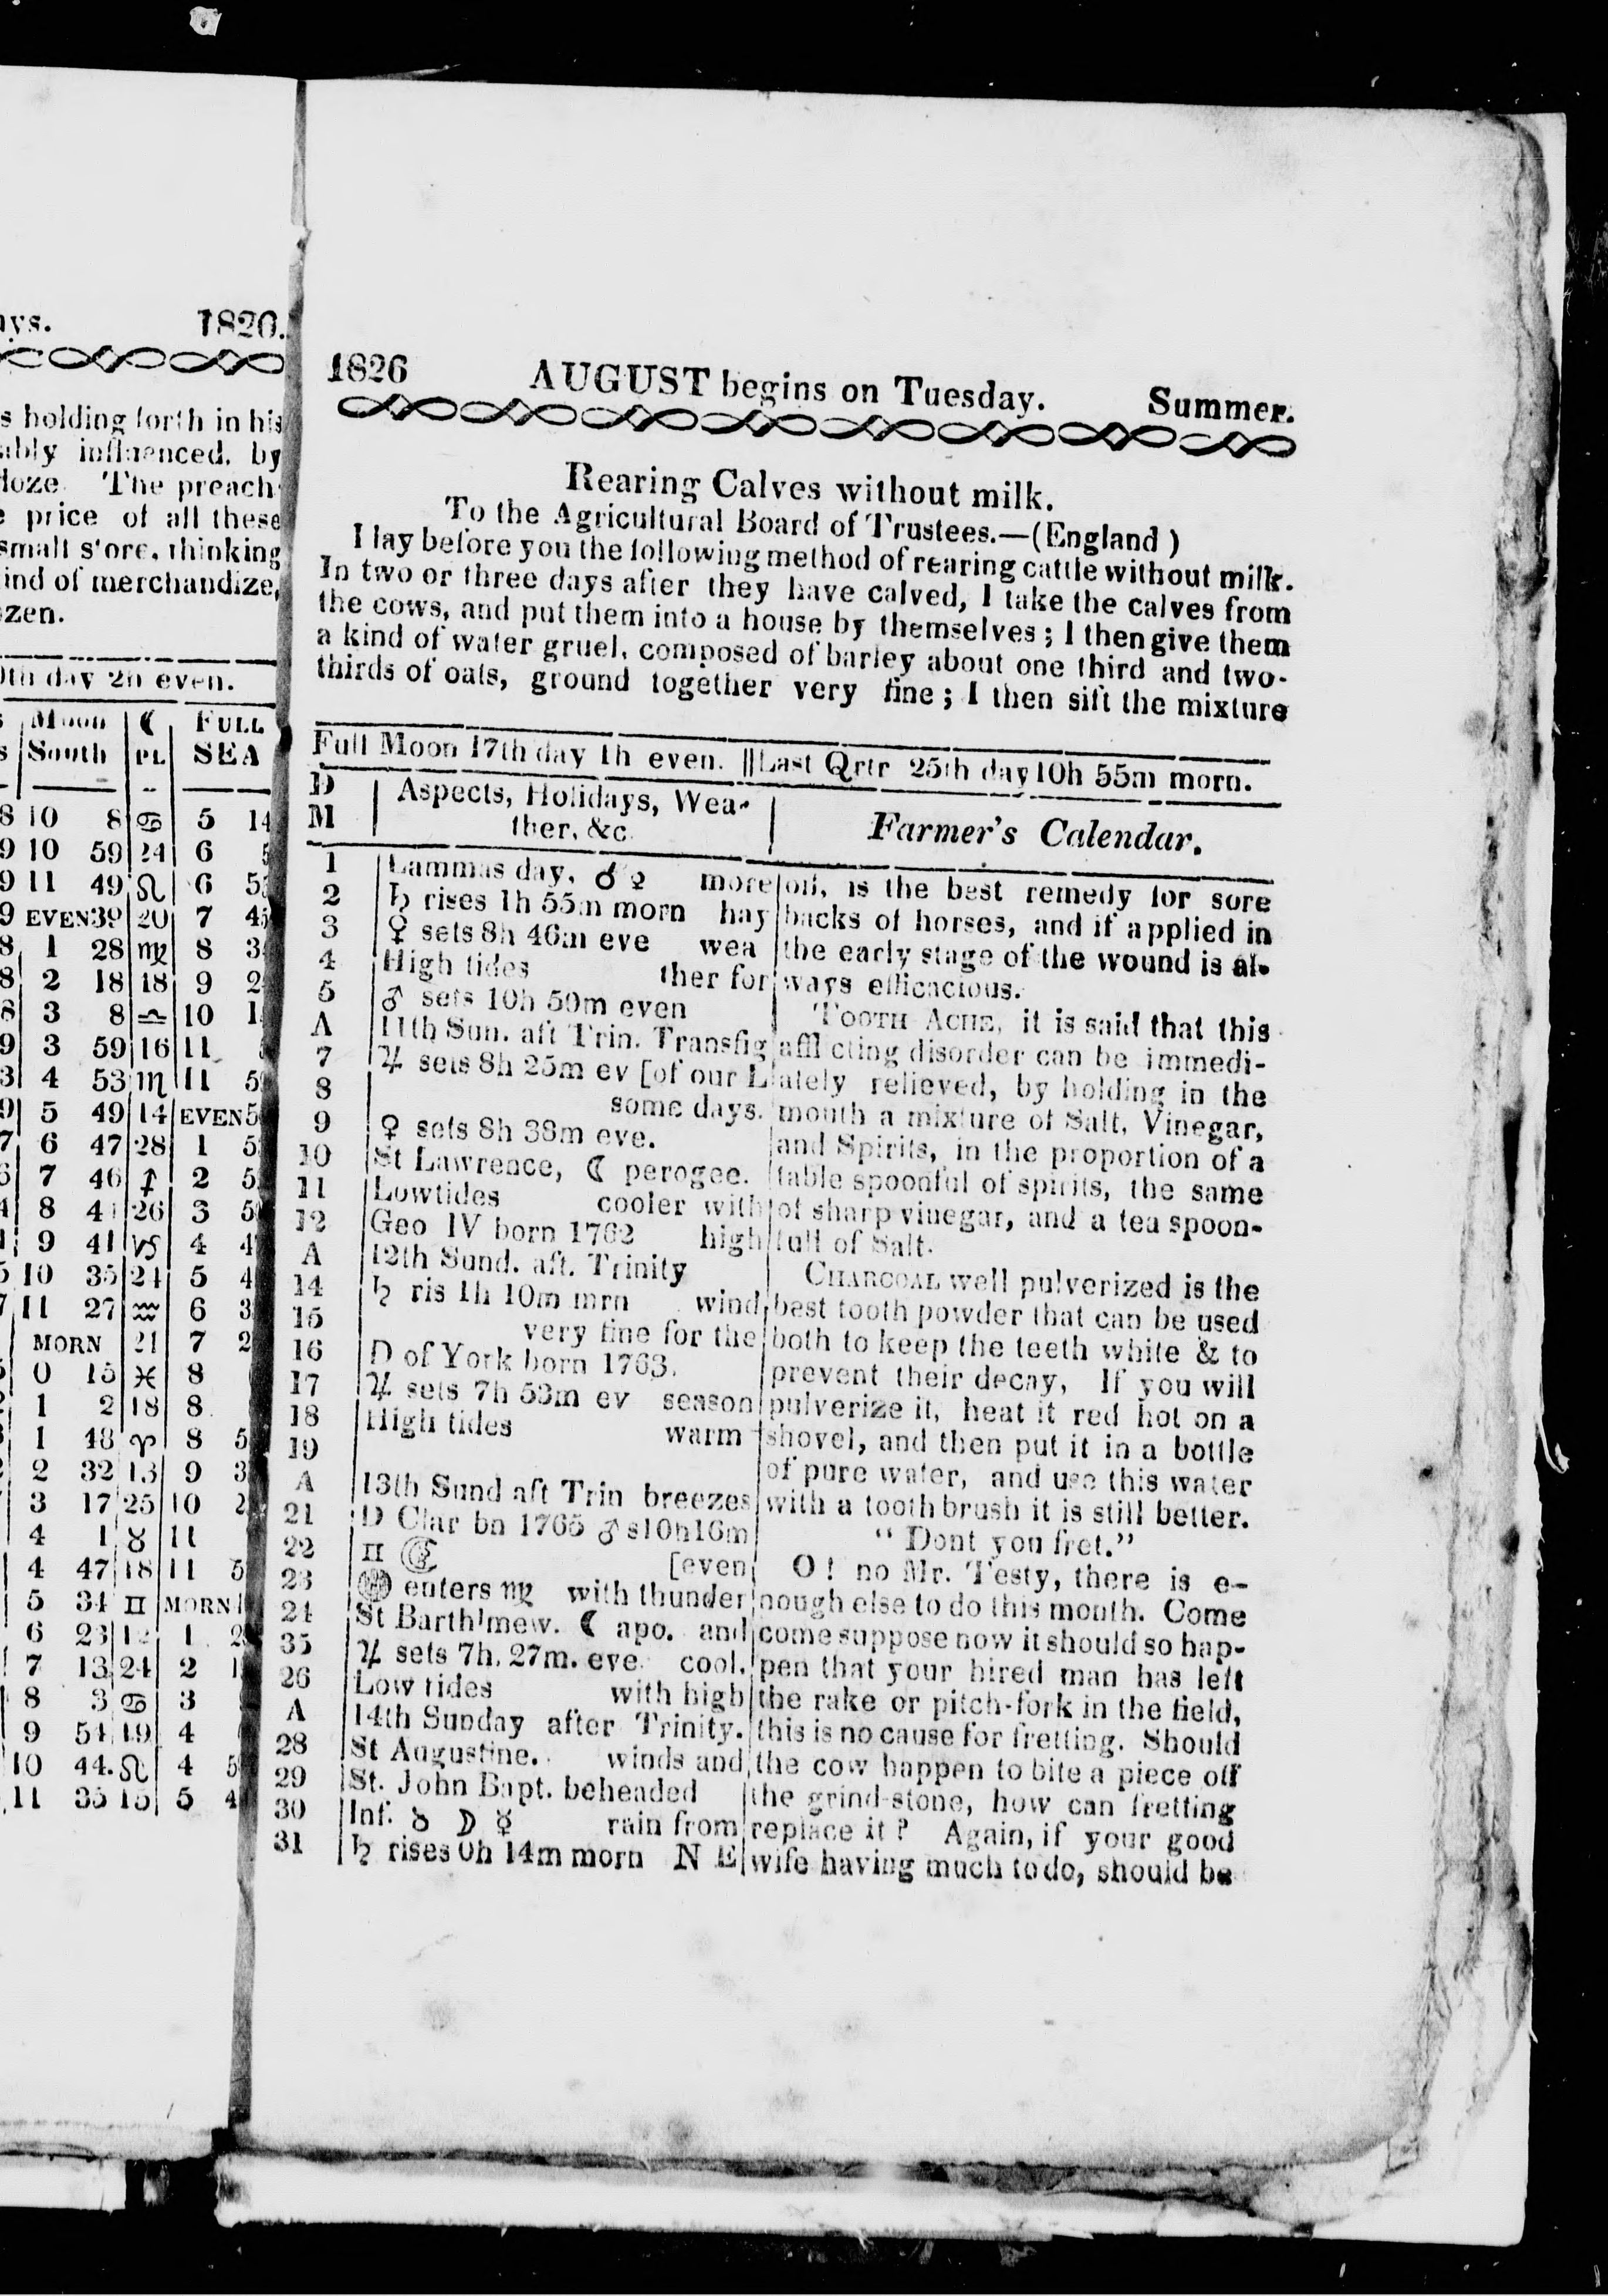 ays. 1820.
s holding forth in his
ably influenced, by
doze. The preach
e price of all these
small s'ore, thinking
ind of merchandize,
ozen.
0th day 2h even.
Moon ☾ FULL
South PL SEA
8 10 8 ♋ 5 14
9 10 59 24 6 5
9 11 49 ♌ 6 5
9 EVEN39 20 7 45
8 1 28 ♍ 8 3
8 2 18 18 9 2
8 3 8 ♎ 10 1
9 3 59 16 11
3 4 53 ♏ 11 5
9 5 49 14 EVEN5
7 6 47 28 1 5
6 7 46 ♐ 2 5
4 8 41 26 3 5
1 9 41 ♑ 4 4
5 10 35 24 5 4
7 11 27 ♒ 6 3
MORN 21 7 2
5 0 15 ♓ 8
1 2 18 8
1 48 ♈ 8 5
2 32 13 9 3
3 17 25 10 2
4 1 ♉ 11
4 47 18 11 5
5 34 ♊ MORN
6 23 12 1 2
7 13 24 2 1
8 3 ♋ 3
9 54 19 4
10 44. ♌ 4 5
11 35 15 5 4
1826 AUGUST begins on Tuesday. Summer.
Rearing Calves without milk.
To the Agricultural Board of Trustees.—(England )
I lay before you the following method of rearing cattle without milk.
In two or three days after they have calved, I take the calves from
the cows, and put them into a house by themselves ; I then give them
a kind of water gruel, composed of barley about one third and two-
thirds of oats, ground together very fine ; I then sift the mixture
Full Moon 17th day 1h even. || Last Qrtr 25th day 10h 55m morn.
D
M
Aspects, Holidays, Wea-
ther, &c.
Farmer's Calendar.
1 Lammas day, ♂ ♀ more
2 ♄ rises 1h 55m morn hay
3 ♀ sets 8h 46m eve wea
4 High tides ther for
5 ♂ sets 10h 59m even
A 11th Sun. aft Trin. Transfig
7 ♃ sets 8h 25m ev [of our L
8 some days.
9 ♀ sets 8h 38m eve.
10 St Lawrence, ☾ perogee.
11 Lowtides cooler with
12 Geo IV born 1762 high
A 12th Sund. aft. Trinity
14 ♄ ris 1h 10m mrn wind,
15 very fine for the
16 D of York born 1763.
17 ♃ sets 7h 53m ev season
18 High tides warm
19
A 13th Sund aft Trin breezes
21 D Clar bn 1765 ♂ s10h16m
22 ♊ ☾ [even
23 ☉ enters ♍ with thunder
24 St Barth'mew. ☾ apo. and
35 ♃ sets 7h. 27m. eve. cool,
26 Low tides with high
A 14th Sunday after Trinity.
28 St Augustine. winds and
29 St. John Bapt. beheaded
30 Inf. ☌ ☽ ☿ rain from
31 ♄ rises 0h 14m morn N E
oil, is the best remedy for sore
backs of horses, and if applied in
the early stage of the wound is al-
ways efficacious.
TOOTH ACHE, it is said that this
affl cting disorder can be immedi-
ately relieved, by holding in the
mouth a mixture of Salt, Vinegar,
and Spirits, in the proportion of a
table spoonful of spirits, the same
of sharp vinegar, and a tea spoon-
full of Salt.
CHARCOAL well pulverized is the
best tooth powder that can be used
both to keep the teeth white & to
prevent their decay, If you will
pulverize it, heat it red hot on a
shovel, and then put it in a bottle
of pure water, and use this water
with a tooth brush it is still better.
" Dont you fret."
O ! no Mr. Testy, there is e-
nough else to do this month. Come
come suppose now it should so hap-
pen that your hired man has left
the rake or pitch-fork in the field,
this is no cause for fretting. Should
the cow happen to bite a piece off
the grind-stone, how can fretting
replace it ? Again, if your good
wife having much to do, should be